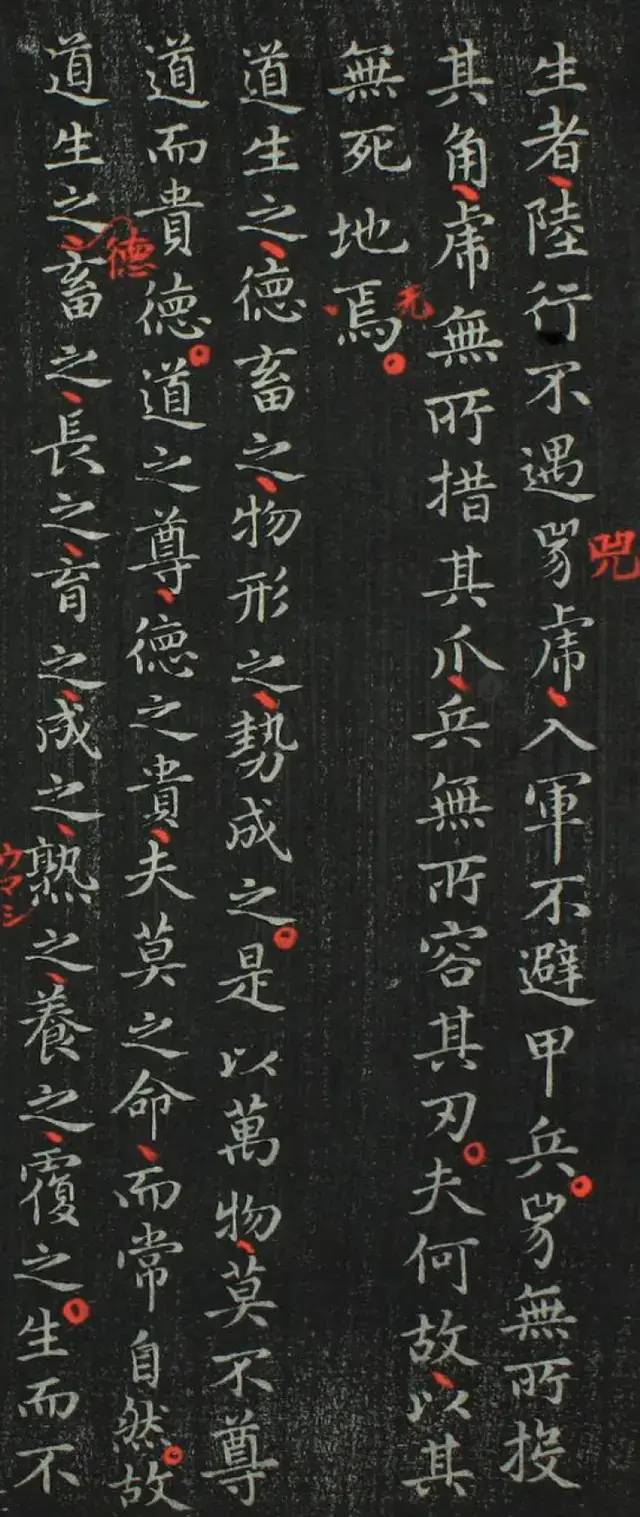 生者、陸行不遇兕虎、入軍不避甲兵。兕無所投
兕
其角、虎無所措其爪、兵無所容其刃。夫何故、以其
無死地焉。
道生之、德畜之、物形之、勢成之。是以萬物、莫不尊
道而貴德。道之尊、德之貴、夫莫之命、而常自然。故
德
道生之、畜之、長之、育之、成之、熟之、養之、覆之。生而不
ウマシ